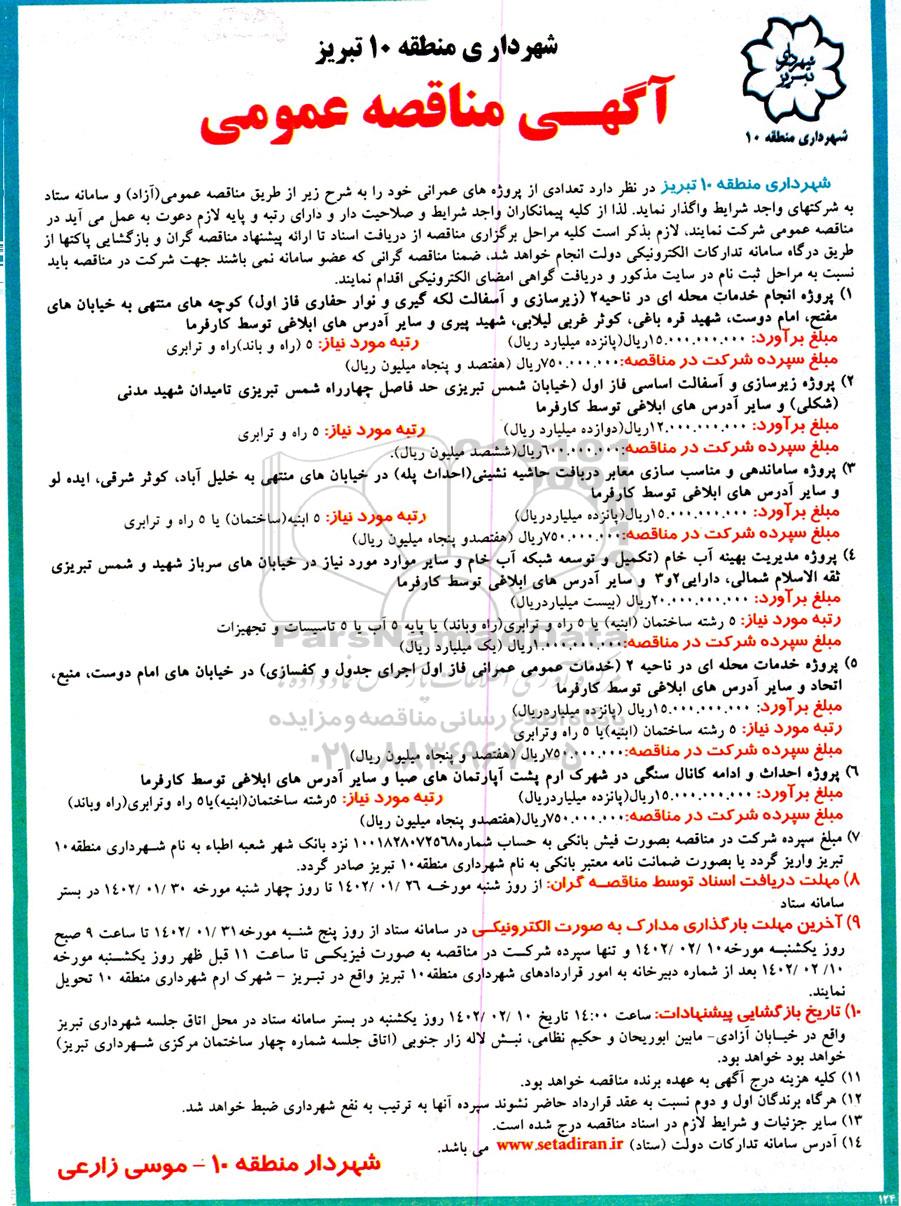 شهرداری منطقه ۱۰ تبریز
آگهی مناقصه عمومی
شهرداری تبریز
شهرداری منطقه ۱۰
شهرداری منطقه ۱۰ تبریز در نظر دارد تعدادی از پروژه های عمرانی خود را به شرح زیر از طریق مناقصه عمومی(آزاد) و سامانه ستاد
به شرکتهای واجد شرایط واگذار نماید. لذا از کلیه پیمانکاران واجد شرایط و صلاحیت دار و دارای رتبه و پایه لازم دعوت به عمل می آید در
مناقصه عمومی شرکت نمایند، لازم بذکر است کلیه مراحل برگزاری مناقصه از دریافت اسناد تا ارائه پیشنهاد مناقصه گران و بازگشایی پاکتها از
طریق درگاه سامانه تدارکات الکترونیکی دولت انجام خواهد شد، ضمنا مناقصه گرانی که عضو سامانه نمی باشند جهت شرکت در مناقصه باید
نسبت به مراحل ثبت نام در سایت مذکور و دریافت گواهی امضای الکترونیکی اقدام نمایند.
۱) پروژه انجام خدمات محله ای در ناحیه۲ (زیرسازی و آسفالت لکه گیری و نوار حفاری فاز اول) کوچه های منتهی به خیابان های
مفتح، امام دوست، شهید قره باغی، کوثر غربی لیلابی، شهید پیری و سایر آدرس های ابلاغی توسط کارفرما
مبلغ برآورد: ۱۵.۰۰۰.۰۰۰.۰۰۰ریال(پانزده میلیارد ریال) رتبه مورد نیاز: ۵ (راه و باند)راه و ترابری
مبلغ سپرده شرکت در مناقصه:۷۵۰.۰۰۰.۰۰۰ریال (هفتصد و پنجاه میلیون ریال)
۲) پروژه زیرسازی و آسفالت اساسی فاز اول (خیابان شمس تبریزی حد فاصل چهارراه شمس تبریزی تامیدان شهید مدنی
(شکلی) و سایر آدرس های ابلاغی توسط کارفرما
مبلغ برآورد: ۱۲.۰۰۰.۰۰۰.۰۰۰ریال(دوازده میلیارد ریال) رتبه مورد نیاز: ۵ راه و ترابری
مبلغ سپرده شرکت در مناقصه:۶۰۰.۰۰۰.۰۰۰ریال(ششصد میلیون ریال).
۳) پروژه ساماندهی و مناسب سازی معابر دربافت حاشیه نشینی(احداث پله) در خیابان های منتهی به خلیل آباد، کوثر شرقی، ایده لو
و سایر آدرس های ابلاغی توسط کارفرما
مبلغ برآورد: ۱۵.۰۰۰.۰۰۰.۰۰۰ریال(پانزده میلیاردریال) رتبه مورد نیاز: ۵ ابنیه(ساختمان) یا ۵ راه و ترابری
مبلغ سپرده شرکت در مناقصه:۷۵۰.۰۰۰.۰۰۰ریال (هفتصدو پنجاه میلیون ریال)
۴) پروژه مدیریت بهینه آب خام (تکمیل و توسعه شبکه آب خام و سایر موارد مورد نیاز در خیابان های سرباز شهید و شمس تبریزی
ثقه الاسلام شمالی، دارایی۲و۳ و سایر آدرس های ابلاغی توسط کارفرما
مبلغ برآورد: ۲۰.۰۰۰.۰۰۰.۰۰۰ریال (بیست میلیاردریال)
رتبه مورد نیاز: ۵ رشته ساختمان (ابنیه) یا ۵ راه و ترابری(راه وباند) یا پایه ۵ آب یا ۵ تاسیسات و تجهیزات
مبلغ سپرده شرکت در مناقصه:۱.۰۰۰.۰۰۰.۰۰۰ریال (یک میلیارد ریال)
ParsNamadData
۵) پروژه خدمات محله ای در ناحیه ۲ (خدمات عمومی عمرانی فاز اول اجرای جدول و کفسازی) در خیابان های امام دوست، منبع،
اتحاد و سایر آدرس های ابلاغی توسط کارفرما
مبلغ برآورد: ۱۵.۰۰۰.۰۰۰.۰۰۰ریال (پانزده میلیاردریال)
پایگاه اطلاع رسانی مناقصه و مزایده
رتبه مورد نیاز: ۵ رشته ساختمان (ابنیه)یا ۵ راه وترابری
مبلغ سپرده شرکت در مناقصه:۷۵۰.۰۰۰.۰۰۰ریال (هفتصد و پنجاه میلیون ریال)
۰۲۱-۸۸۳۴۹۶۷۰-۵
۶) پروژه احداث و ادامه کانال سنگی در شهرک ارم پشت آپارتمان های صبا و سایر آدرس های ابلاغی توسط کارفرما
مبلغ برآورد: ۱۵.۰۰۰.۰۰۰.۰۰۰ریال(پانزده میلیاردریال) رتبه مورد نیاز: ۵رشته ساختمان(ابنیه)یا۵ راه وترابری(راه وباند)
مبلغ سپرده شرکت در مناقصه:۷۵۰.۰۰۰.۰۰۰ریال(هفتصدو پنجاه میلیون ریال)
۷) مبلغ سپرده شرکت در مناقصه بصورت فیش بانکی به حساب شماره۱۰۰۱۸۲۸۰۷۲۵۶۸ نزد بانک شهر شعبه اطباء به نام شهرداری منطقه۱۰
تبریز واریز گردد یا بصورت ضمانت نامه معتبر بانکی به نام شهرداری منطقه۱۰ تبریز صادر گردد.
۸) مهلت دریافت اسناد توسط مناقصه گران: از روز شنبه مورخه ۲۶ /۰۱ /۱۴۰۲ تا روز چهار شنبه مورخه ۳۰ /۰۱ /۱۴۰۲ در بستر
سامانه ستاد
۹) آخرین مهلت بارگذاری مدارک به صورت الکترونیکی در سامانه ستاد از روز پنج شنبه مورخه۳۱ /۰۱ /۱۴۰۲ تا ساعت ۹ صبح
روز یکشنبه مورخه۱۰ /۰۲ /۱۴۰۲ و تنها سپرده شرکت در مناقصه به صورت فیزیکی تا ساعت ۱۱ قبل ظهر روز یکشنبه مورخه
۱۰ /۰۲ /۱۴۰۲ بعد از شماره دبیرخانه به امور قراردادهای شهرداری منطقه۱۰ تبریز واقع در تبریز - شهرک ارم شهرداری منطقه ۱۰ تحویل
نمایند.
۱۰) تاریخ بازگشایی پیشنهادات: ساعت ۱۴:۰۰ تاریخ ۱۰ /۰۲ /۱۴۰۲ روز یکشنبه در بستر سامانه ستاد در محل اتاق جلسه شهرداری تبریز
واقع در خیابان آزادی- مابین ابوریحان و حکیم نظامی، نبش لاله زار جنوبی (اتاق جلسه شماره چهار ساختمان مرکزی شهرداری تبریز)
خواهد بود خواهد بود.
۱۱) کلیه هزینه درج آگهی به عهده برنده مناقصه خواهد بود.
۱۲) هرگاه برندگان اول و دوم نسبت به عقد قرارداد حاضر نشوند سپرده آنها به ترتیب به نفع شهرداری ضبط خواهد شد.
۱۳) سایر جزئیات و شرایط لازم در اسناد مناقصه درج شده است.
۱۴) آدرس سامانه تدارکات دولت (ستاد) www.setadiran.ir می باشد.
شهردار منطقه ۱۰ - موسی زارعی
۱۲۴